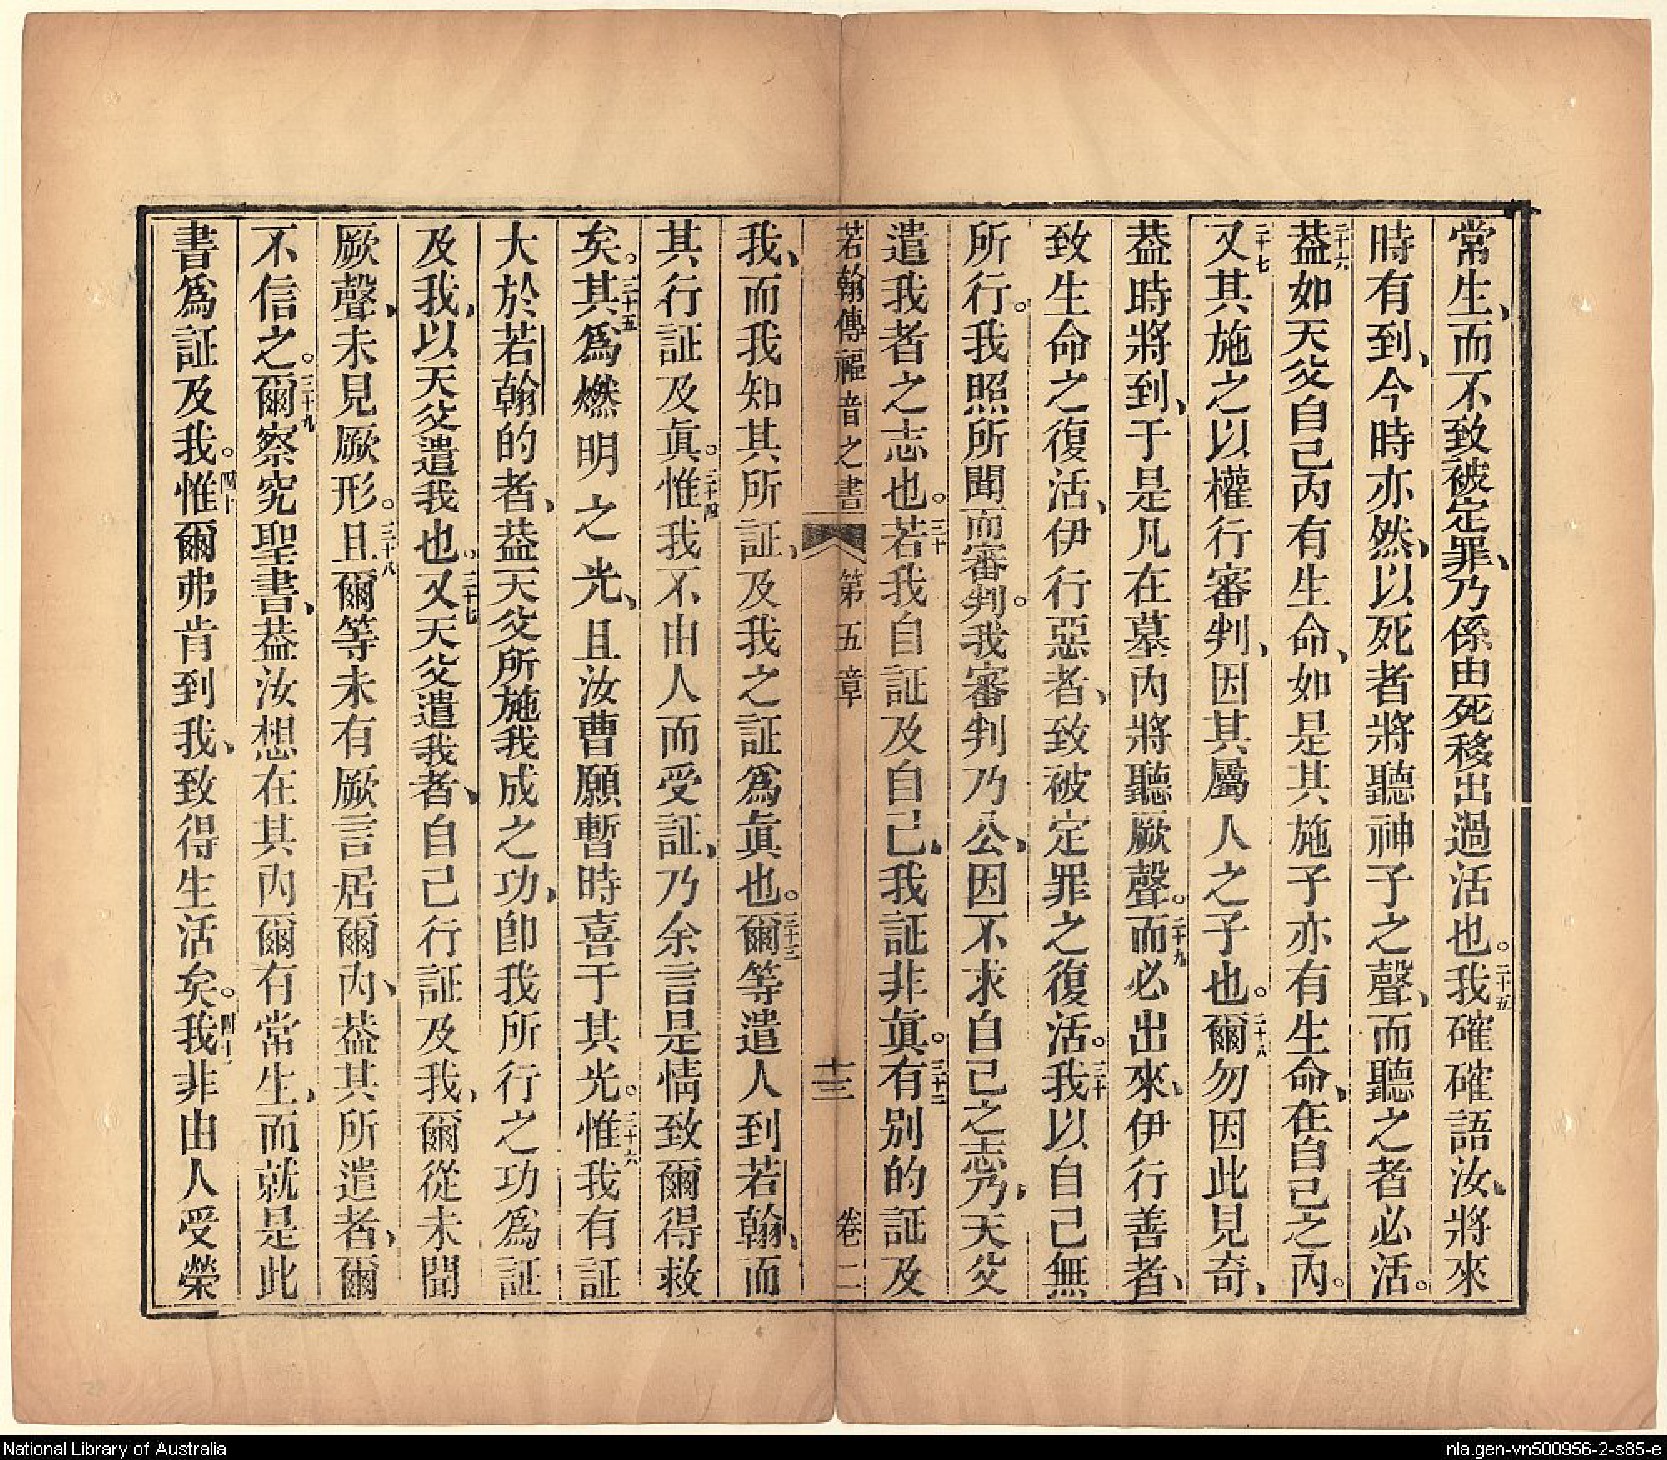 常生、而不致被定罪、乃係由死移出過活也。二十五我確確語汝、將來
時有到、今時亦然、以死者將聽神子之聲、而聽之者必活。
二十六葢如天父自己內有生命、如是其施子亦有生命、在自己之內。
二十七又其施之以權行審判、因其屬人之子也。二十八爾勿因此見奇、
葢時將到、于是凡在墓內將聽厥聲。二十九而必出來、伊行善者、
致生命之復活、伊行惡者、致被定罪之復活。三十我以自己無
所行。我照所聞而審判。我審判乃公、因不求自己之志、乃天父
遣我者之志也。三十若我自証及自己、我証非眞。三十二有別的証及
若翰傳福音之書 第五章 十三 卷二
我、而我知其所証、及我之証為眞也。三十三爾等遣人到若翰、而
其行証及眞。三十四惟我不由人而受証、乃余言是情致爾得救
矣。三十五其為燃明之光、且汝曹願暫時喜于其光。三十六惟我有証
大於若翰的者、葢天父所施我成之功、卽我所行之功為証
及我、以天父遣我也。三十七又天父遣我者、自己行証及我、爾從未聞
厥聲、未見厥形。三十八且爾等未有厥言居爾內、葢其所遣者、爾
不信之。三十九爾察究聖書、葢汝想在其內爾有常生、而就是此
書為証及我。四十惟爾弗肯到我、致得生活矣。四十一我非由人受榮
National Library of Australia
nla.gen-vn500956-2-s85-e